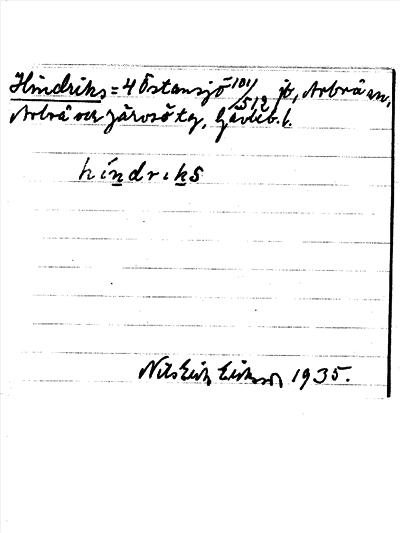 Hindriks = 4 Östansjö 101/512 jb, Arbrå sn,
Arbrå och Järvsö tg, Gävleb. l.
hindriks
Nils Erik Eriksson 1935.